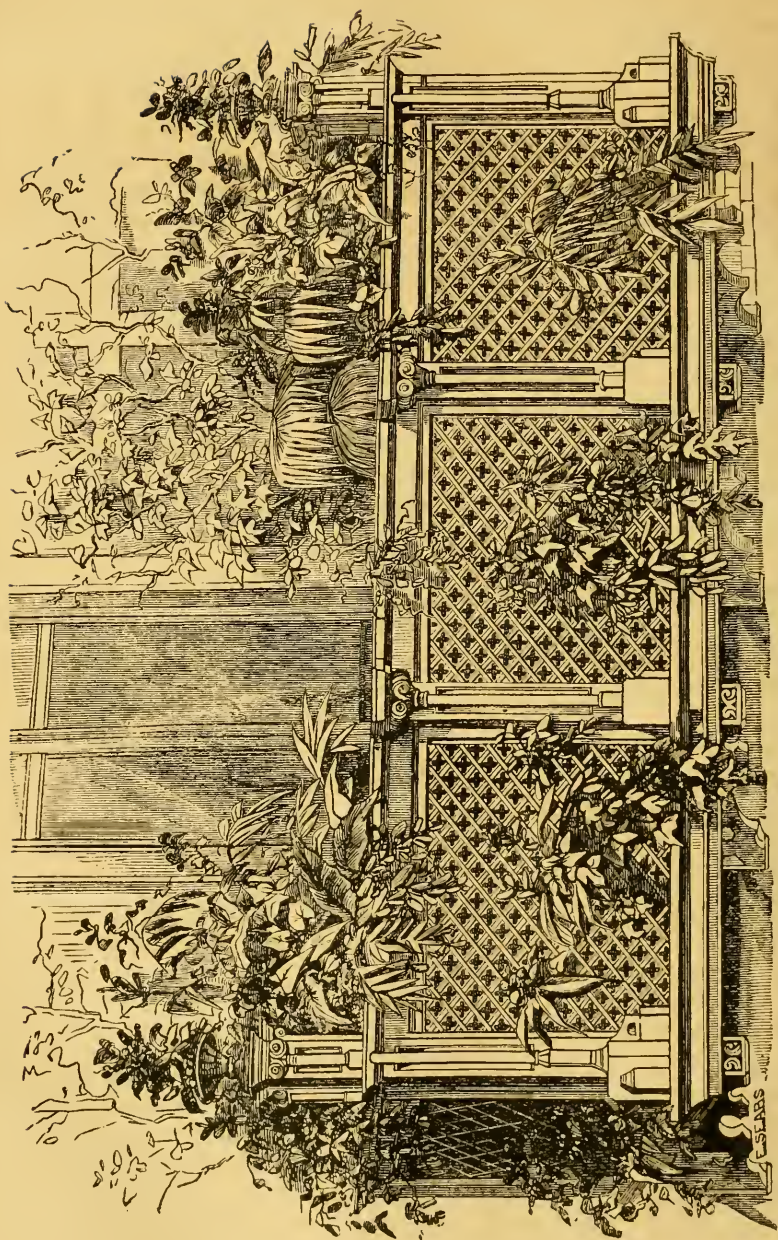 E. SEARS